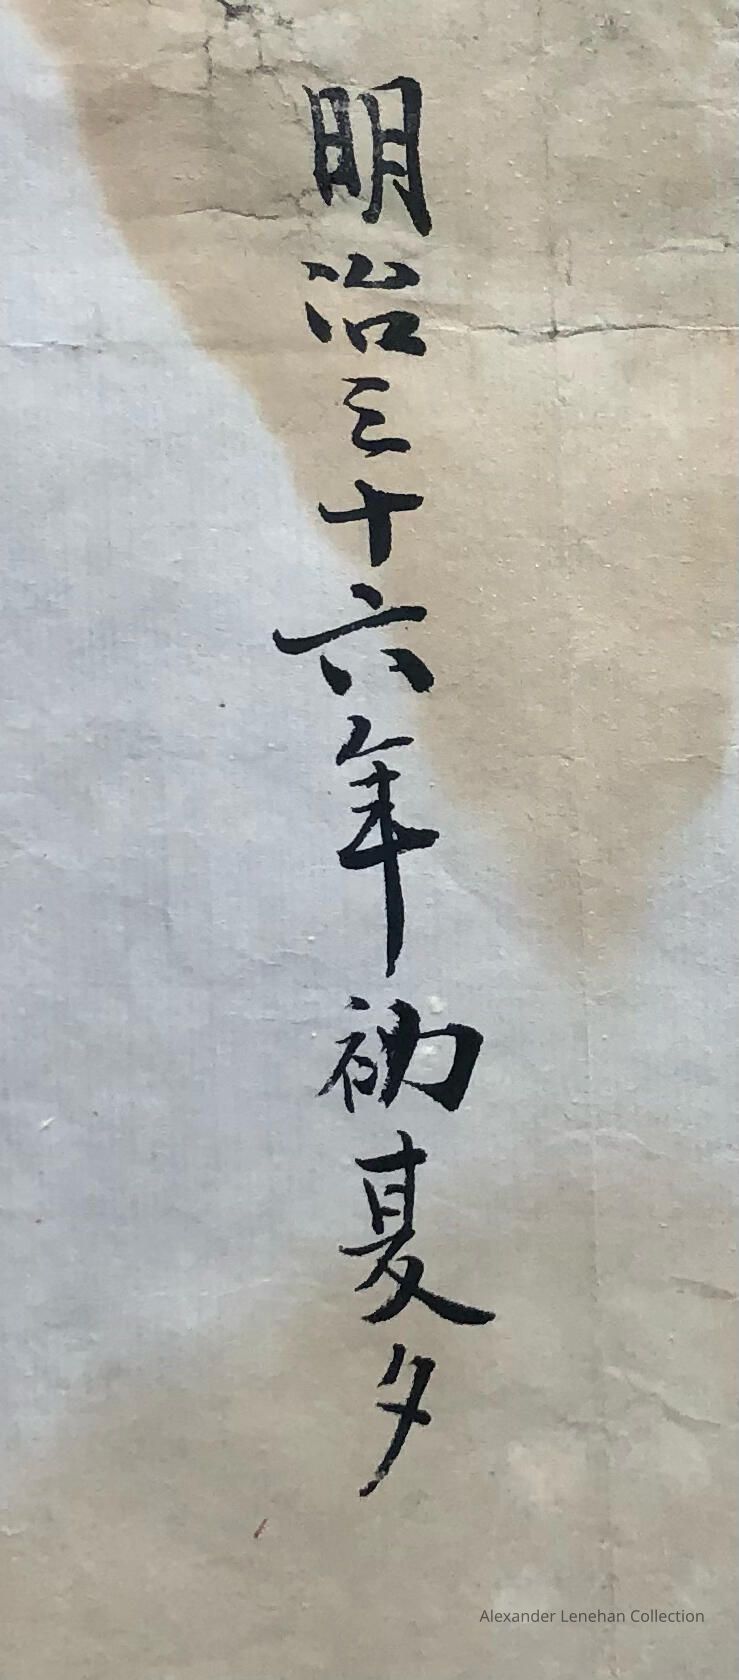 明治三十六年初夏夕
Alexander Lenehan Collection